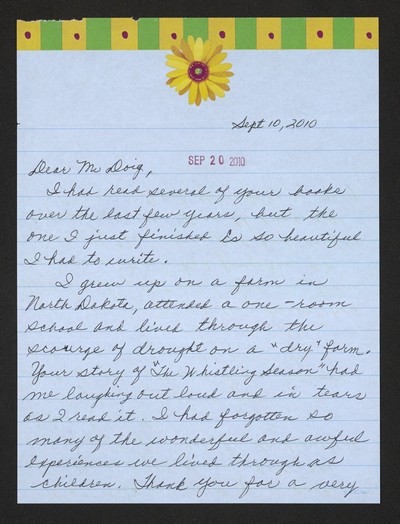 Sept 10, 2010
SEP 20 2010
Dear Mr Doig,
I had read several of your books
over the last few years, but the
one I just finished is so beautiful
I had to write.
I grew up on a farm in
North Dakota, attended a one-room
school and lived through the
scourge of drought on a "dry" farm.
Your story of "The Whistling Season" had
me laughing out loud and in tears
as I read it. I had forgotten so
many of the wonderful and awful
experiences we lived through as
children. Thank you for a very